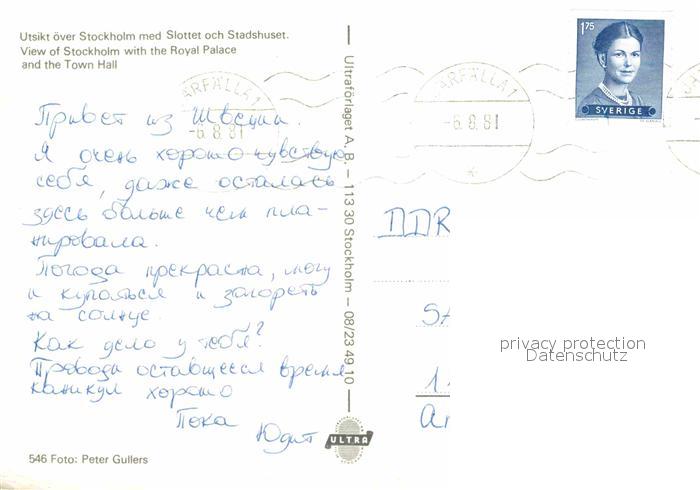 Utsikt över Stockholm med Slottet och Stadshuset.
View of Stockholm with the Royal Palace
and the Town Hall
Привет из Швеции.
Я очень хорошо чувствую
себя, даже осталась
здесь больше чем пла-
нировала.
Погода прекрастна, могу
и купаться и загореть
на солнце.
Как дело у тебя?
Проводи оставшееся время
каникул хорошо
Пока
Юдит
546 Foto: Peter Gullers
Ultraförlaget A. B. – 113 30 Stockholm – 08/23 49 10
ULTRA
ÄRFÄLLA 1
-6.8.81
ÄRFÄLLA 1
-6.8.81
175
SVERIGE
DDR
privacy protection
Datenschutz